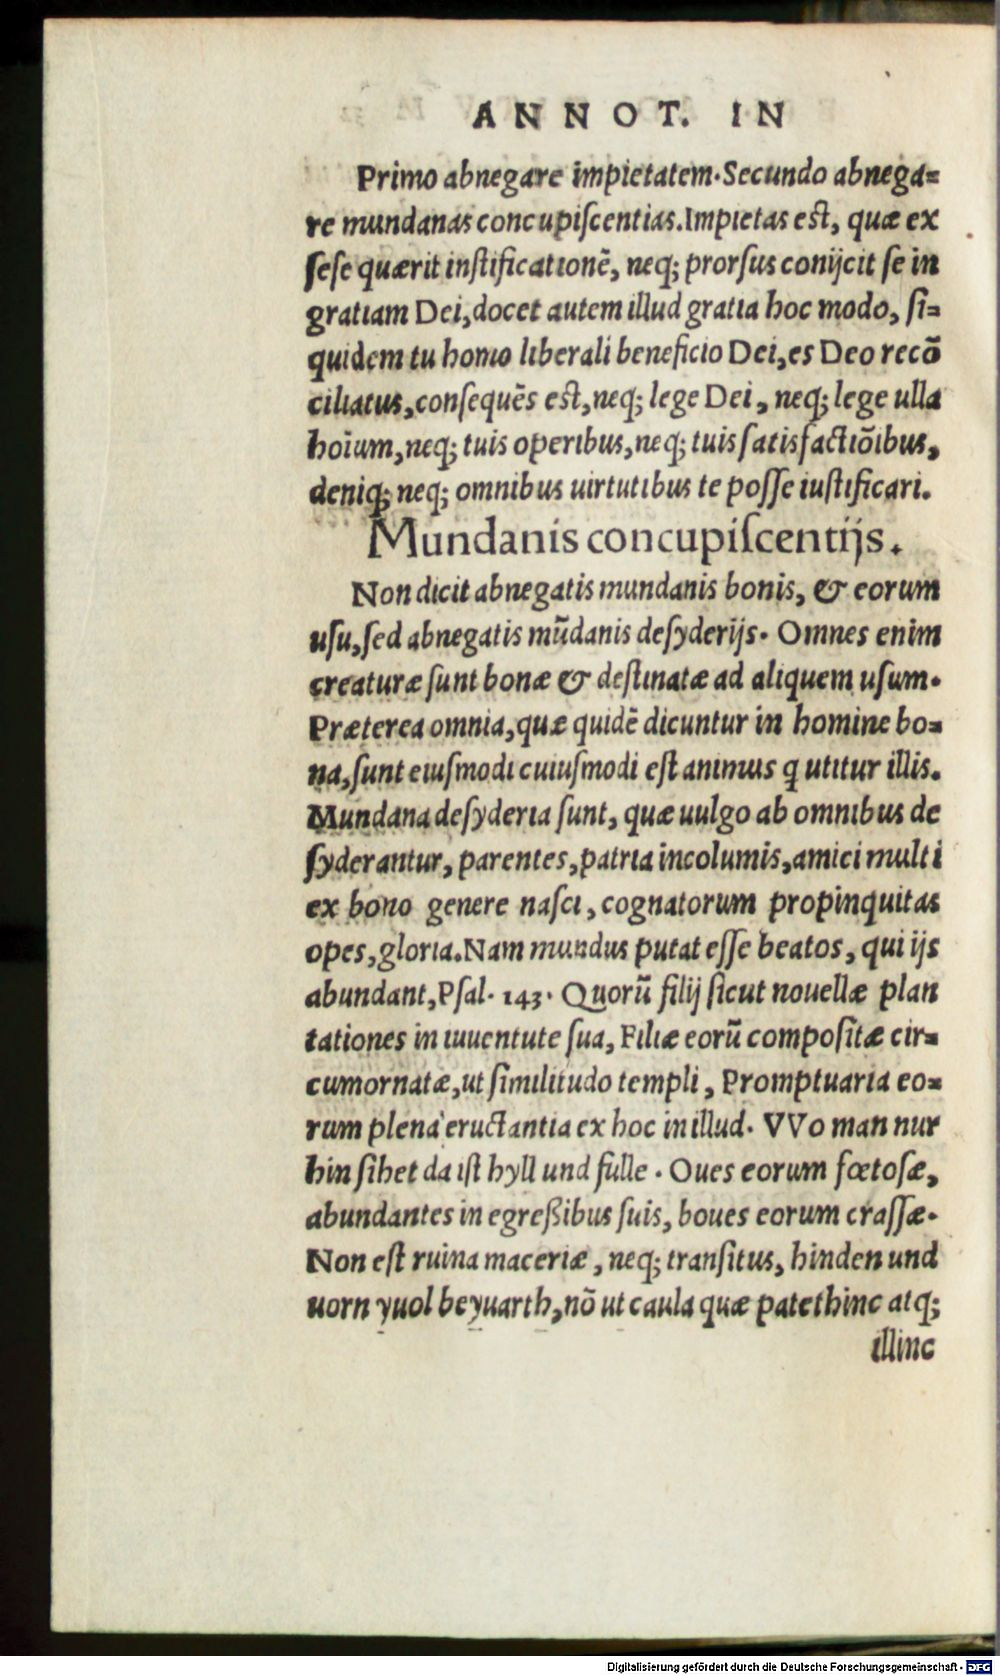 ANNOT. IN
Primo abnegare impietatem. Secundo abnega=
re mundanas concupiſcentias. Impietas eſt, quæ ex
ſeſe quærit inſtificationẽ, neq; prorſus conijcit ſe in
gratiam Dei, docet autem illud gratia hoc modo, ſi=
quidem tu homo liberali beneficio Dei, es Deo recõ
ciliatus, conſequẽs eſt, neq; lege Dei, neq; lege ulla
hoĩum, neq; tuis operibus, neq; tuis ſatisfactiõibus,
deniq; neq; omnibus uirtutibus te poſſe iuſtificari.
Mundanis concupiſcentijs.
Non dicit abnegatis mundanis bonis, & eorum
uſu, ſed abnegatis mũdanis deſyderijs. Omnes enim
creaturæ ſunt bonæ & deſtinatæ ad aliquem uſum.
Præterea omnia, quæ quidẽ dicuntur in homine bo=
na, ſunt eiuſmodi cuiuſmodi eſt animus q utitur illis.
Mundana deſyderia ſunt, quæ uulgo ab omnibus de
ſyderantur, parentes, patria incolumis, amici multi
ex bono genere naſci, cognatorum propinquitas
opes, gloria. Nam mundus putat eſſe beatos, qui ijs
abundant, Pſal. 143. Quorũ filij ſicut nouellæ plan
tationes in iuuentute ſua, Filiæ eorũ compoſitæ cir=
cumornatæ, ut ſimilitudo templi, Promptuaria eo=
rum plena eructantia ex hoc in illud. VVo man nur
hin ſihet da iſt hyll und fulle. Oues eorum fœtoſæ,
abundantes in egreßibus ſuis, boues eorum craſſæ.
Non eſt ruina maceriæ, neq; tranſitus, hinden und
uorn yuol beyuarth, nõ ut caula quæ patet hinc atq;
illinc
Digitalisierung gefördert durch die Deutsche Forschungsgemeinschaft - DFG